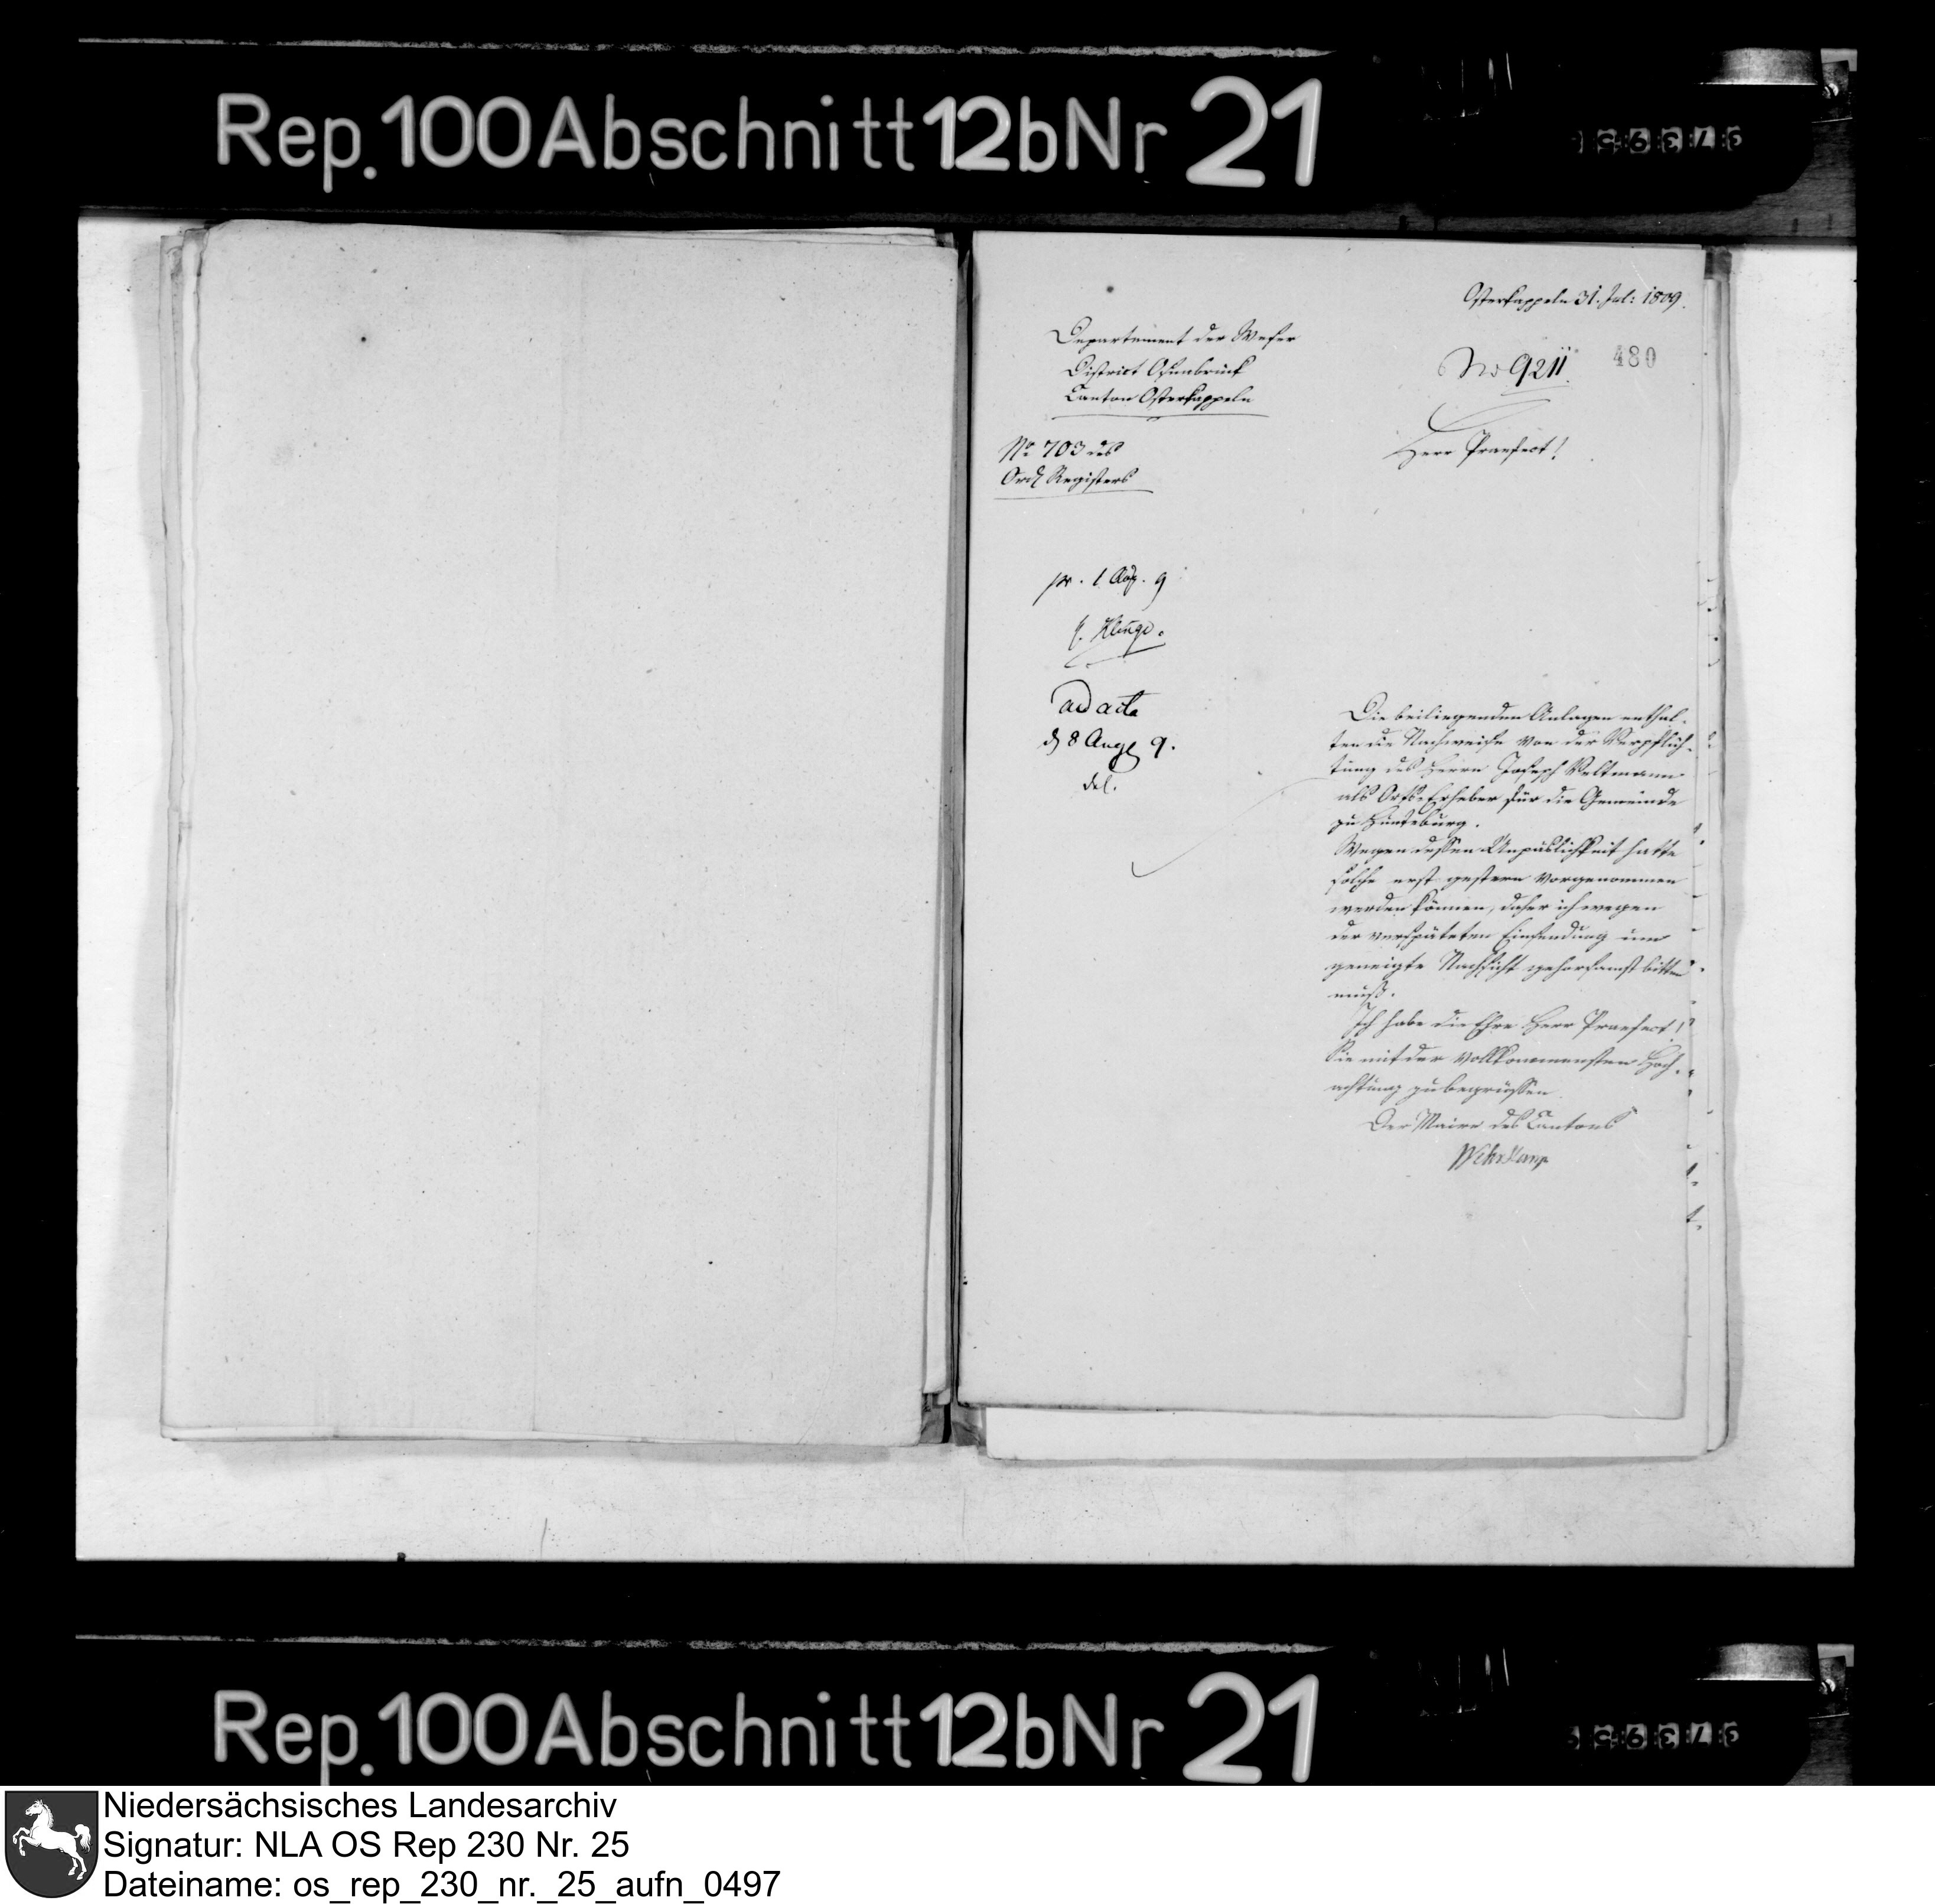 Rep. 100 Abschnitt 12b Nr 21
Osterkappeln 31. Jul: 1809.
Departement der Weser
District Osnabrück
Canton Osterkappeln
No 9211.
480
Herr Praefect!
No 703 des
Ord. Registers
pr. 1 Aug. 9
Klinge.
ad acta
d 8 Aug 9.
Die beiliegenden Anlagen enthal-
ten die Nachweise von der Verpflich-
tung des Herrn Joseph Veltmann
als Orts-Erheber für die Gemeinde
zu Hunteburg.
Wegen dessen Unpäslichkeit hatte
solche erst gestern vorgenommen
werden können, daher ich wegen
der verspäteten Einsendung um
geneigte Nachsicht gehorsamst bitten
muß.
Ich habe die Ehre Herr Praefect!
Sie mit der vollkommensten Hoch-
achtung zu begrüssen.
Der Maire des Cantons
Wehrkamp
Rep. 100 Abschnitt 12b Nr 21
Niedersächsisches Landesarchiv
Signatur: NLA OS Rep 230 Nr. 25
Dateiname: os_rep_230_nr._25_aufn_0497